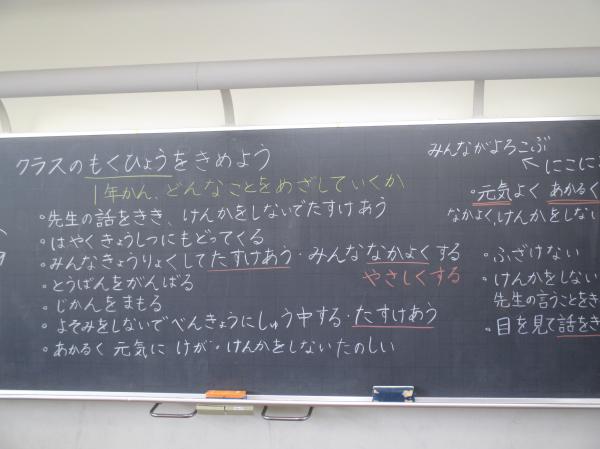 クラスのもくひょうをきめよう
1年かん、どんなことをめざしていくか
・先生の話をきき、けんかをしないでたすけあう
・はやくきょうしつにもどってくる
・みんなきょうりょくしてたすけあう・みんななかよくする
やさしくする
・とうばんをがんばる
・じかんをまもる
・よそみをしないでべんきょうにしゅう中する・たすけあう
・あかるく 元気に けが・けんかをしない たのしい
みんながよろこぶ
にこにこ
・元気よく あかるく
なかよく、けんかをしない
・ふざけない
・けんかをしない
先生の言うことをき
・目を見て話をき